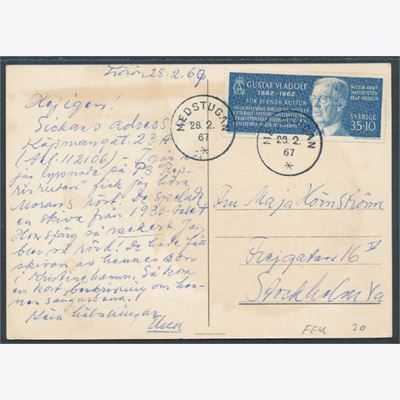 28.2.67
Hej igen!
Sickans adress
Käpmangat. 23 A
(tel. 112106)
jag lyssnade på P3
fick jag höra
Morans röst. De spelade
en skiva från 1930-talet
Hon sjöng så vackert. Jag
blev så rörd! De hade fått
skivan av hennes son
i Kristinehamn. Så kom
en kort beskrivning om hen-
nes sångarbana!
Nära hälsningar
GUSTAF VI ADOLF
1882-1962
FÖR SVENSK KULTUR
SVERIGE
35+10
MEDSTUGAN
28. 2.
67
MEDSTUGAN
28. 2.
67
Fru Maja Kömström
Frejgatan 16 IV
Stockholm Va
FEU 30